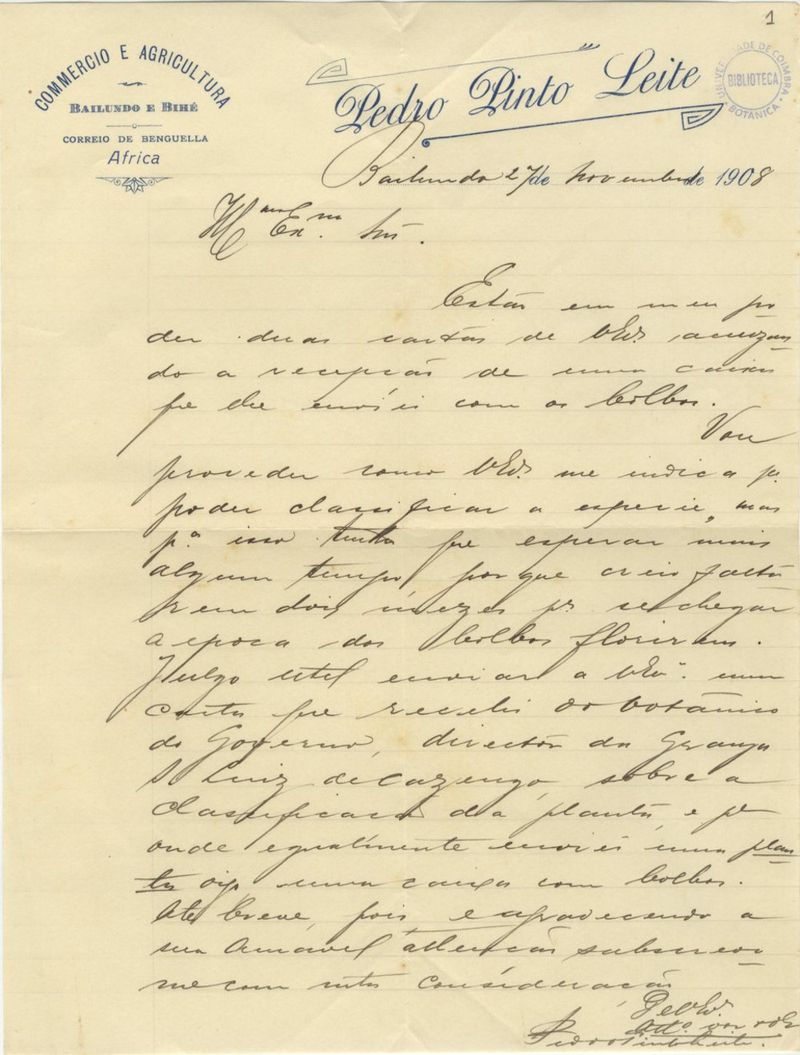 1
COMMERCIO E AGRICULTURA
BAILUNDO E BIHÉ
CORREIO DE BENGUELLA
Africa
Pedro Pinto Leite
UNIVERSIDADE DE COIMBRA
BIBLIOTECA
BOTANICA
Bailundo 27 de Novembro de 1908
Illmo Exmo Snr.
Estão em meu po
der duas cartas de VExa. accuzan
do a recepção de uma caixa
que lhe enviei com os bolbos.
Vou
proceder como VExa. me indica pa
poder classificar a especie, mas
pa isso tenho que esperar mais
algum tempo, porque creio falta
rem dois mezes pa se chegar
a epoca dos bolbos florirem.
Julgo util enviar a VExa. uma
carta que recebi do botanico
do Governo, director da Granja
S Luiz de Cazengo, sobre a
classificação da planta, e pa
onde egualmente enviei uma plan
ta uma caixa com bolbos.
Até breve, pois, e agradecendo a
sua amavel attenção subscrevo
me com consideração
De VExa.
Atto.
Pedro Pinto Leite.